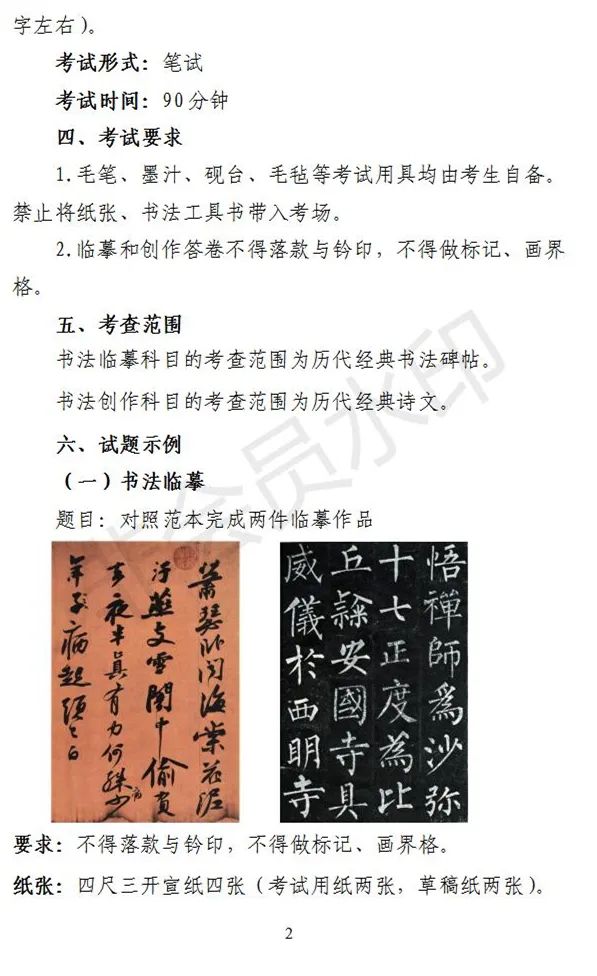 字左右）。
考试形式：笔试
考试时间：90分钟
四、考试要求
1.毛笔、墨汁、砚台、毛毡等考试用具均由考生自备。
禁止将纸张、书法工具书带入考场。
2.临摹和创作答卷不得落款与钤印，不得做标记、画界
格。
五、考查范围
书法临摹科目的考查范围为历代经典书法碑帖。
书法创作科目的考查范围为历代经典诗文。
六、试题示例
（一）书法临摹
题目：对照范本完成两件临摹作品
蕭瑟卧聞海棠花泥
汙燕支雪闇中偷負
去夜半真有力何殊少
病
年子病起須已白
悟禪師爲沙弥
十七正度爲比
丘隸安國寺具
威儀於西明寺
要求：不得落款与钤印，不得做标记、画界格。
纸张：四尺三开宣纸四张（考试用纸两张，草稿纸两张）。
2
非会员水印